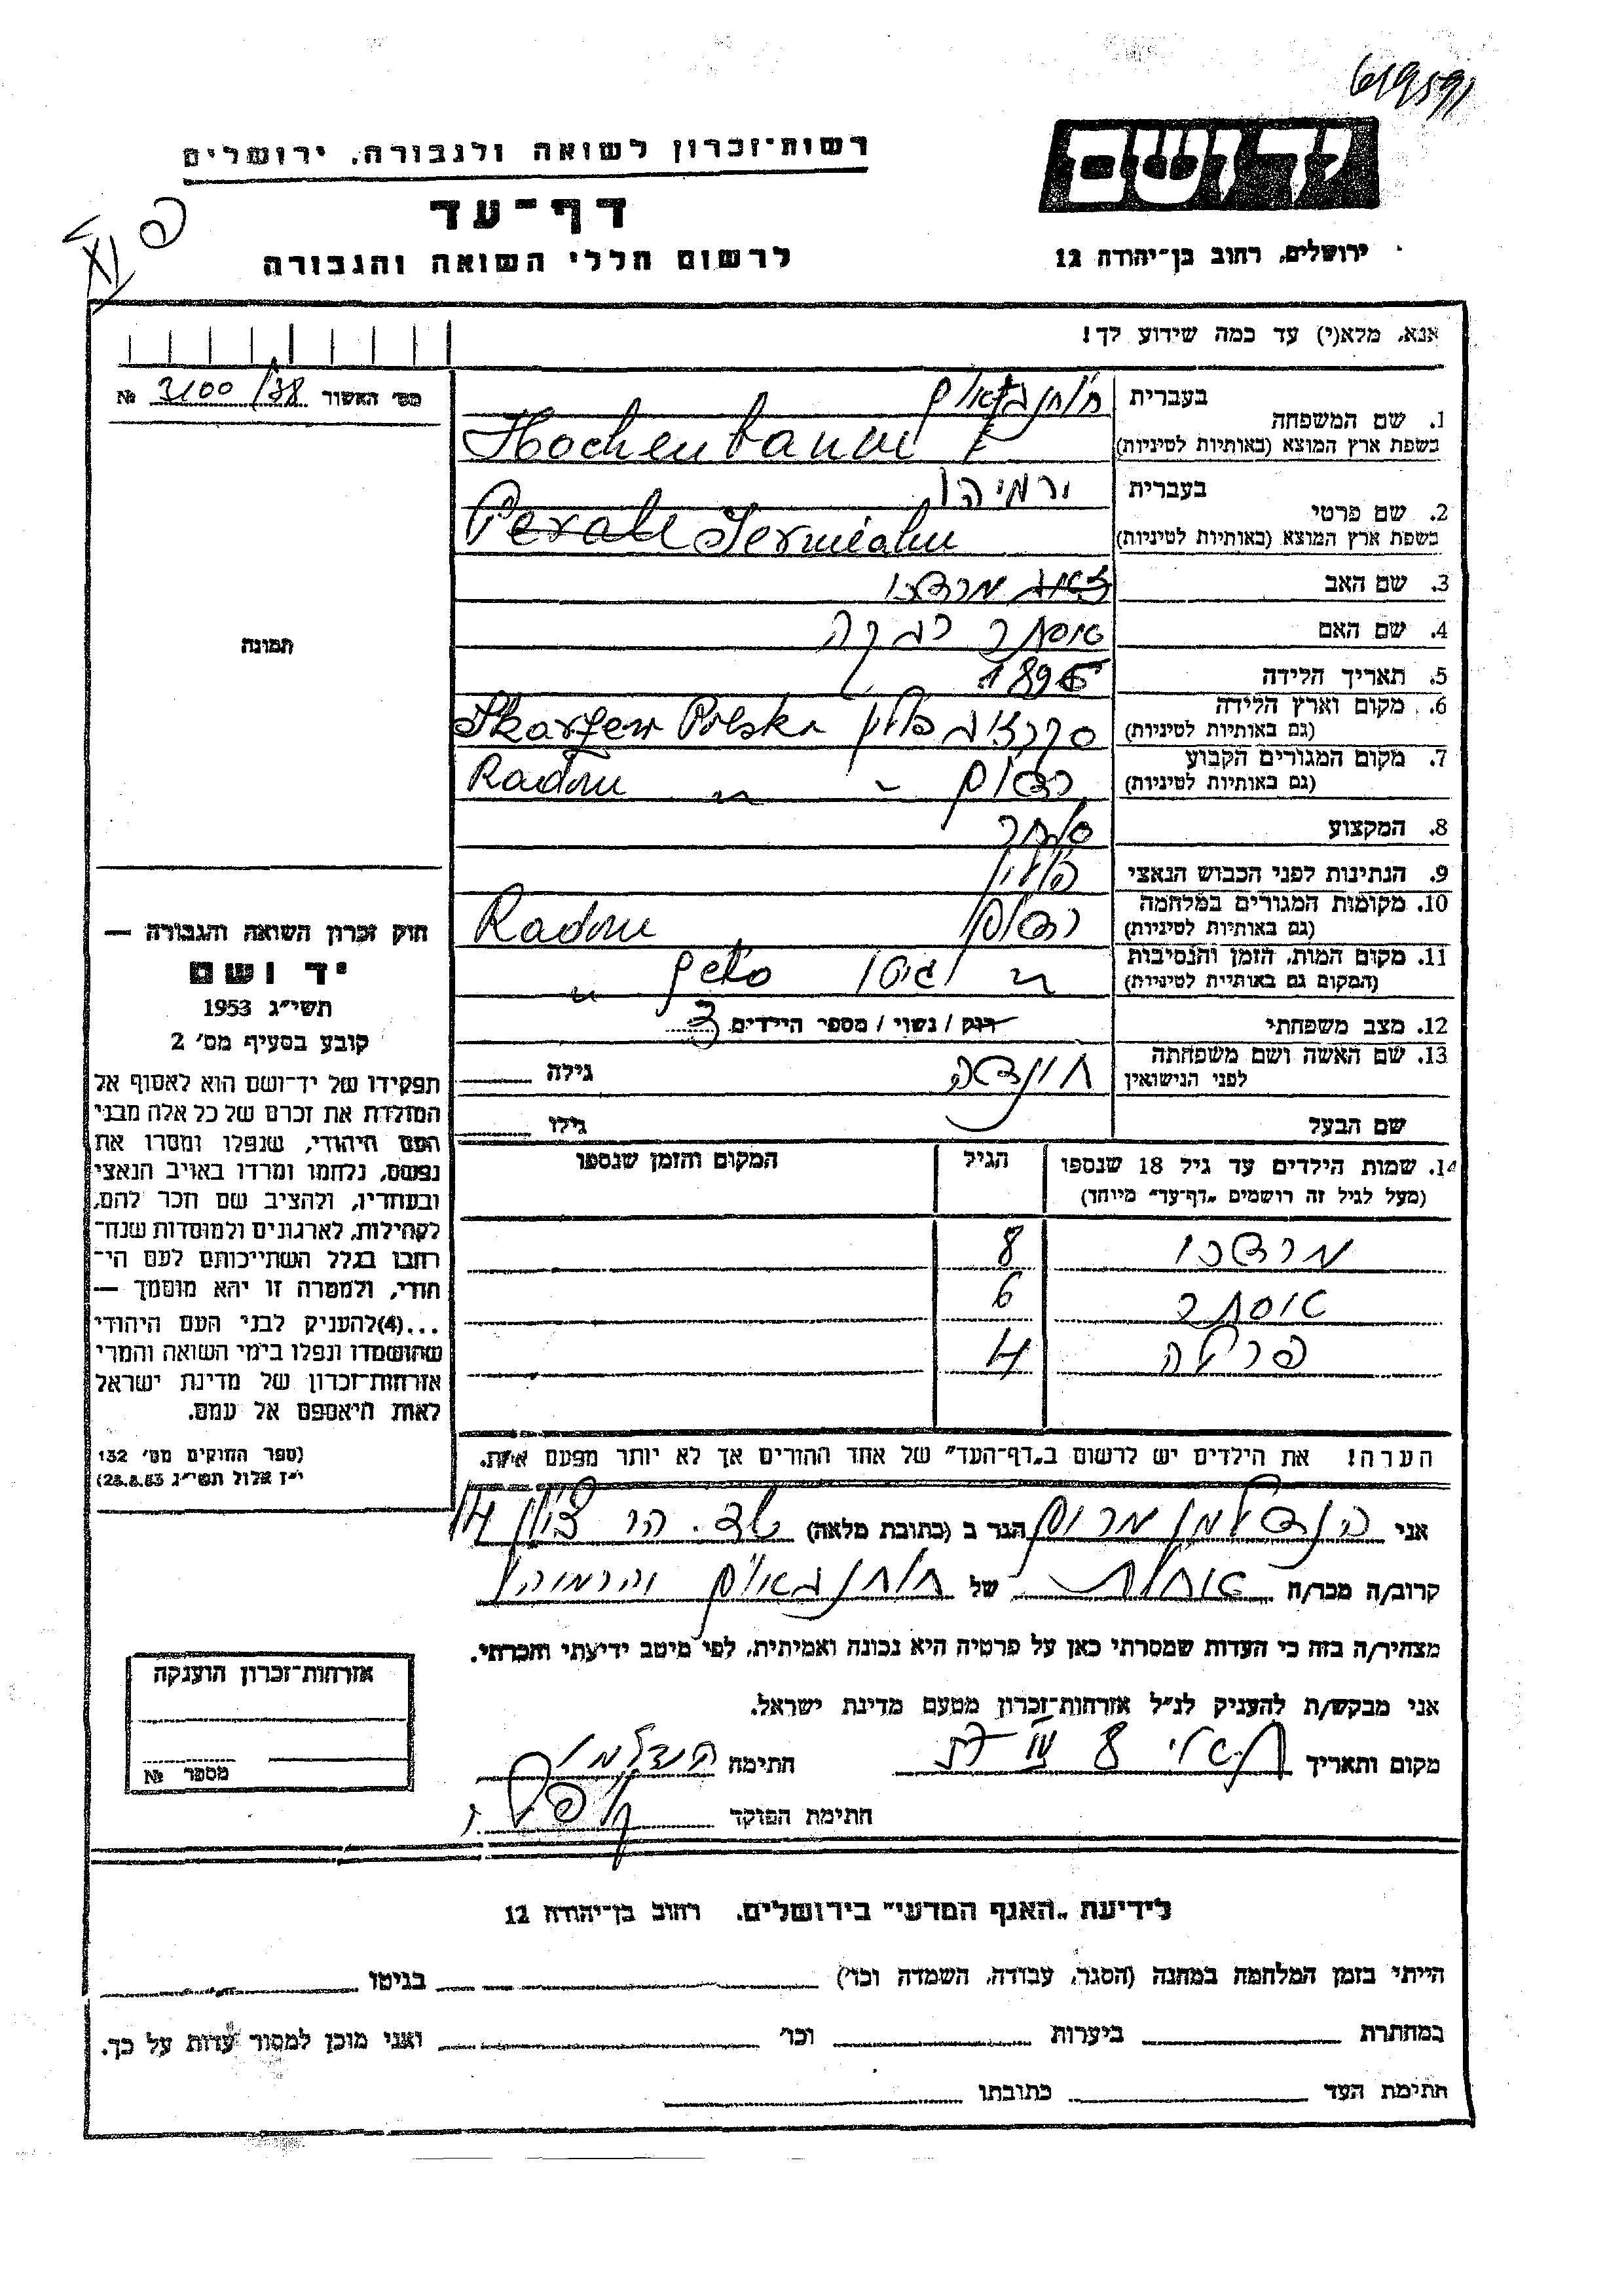 619591
יד ושם
ירושלים, רחוב בן־יהודה 12
רשות־זכרון לשואה ולגבורה, ירושלים
דף־עד
לרשום חללי השואה והגבורה
אנא, מלא(י) עד כמה שידוע לך!
מס׳ האשור № 3100/38
תמונה
1. שם המשפחה בעברית
בשפת ארץ המוצא (באותיות לטיניות) Hochenbaum
2. שם פרטי בעברית ירמיהו
בשפת ארץ המוצא (באותיות לטיניות) Jermiahu
3. שם האב מרדכי
4. שם האם אסתר רבקה
5. תאריך הלידה
6. מקום וארץ הלידה
(גם באותיות לטיניות) פולין Polska
7. מקום המגורים הקבוע
(גם באותיות לטיניות) רדום Radom
8. המקצוע סוחר
9. הנתינות לפני הכבוש הנאצי פולין
10. מקומות המגורים במלחמה
(גם באותיות לטיניות) רדום Radom
11. מקום המות, הזמן והנסיבות
(המקום גם באותיות לטיניות) גיטו
12. מצב משפחתי רוק / נשוי / מספר הילדים 3
13. שם האשה ושם משפחתה
לפני הנישואין
גילה
שם הבעל
גילו
14. שמות הילדים עד גיל 18 שנספו
(מעל לגיל זה רושמים „דף־עד״ מיוחד)
הגיל
המקום והזמן שנספו
מרדכי 8
אסתר 6
פרלה 4
הערה! את הילדים יש לרשום ב„דף־העד״ של אחד ההורים אך לא יותר מפעם אחת.
חוק זכרון השואה והגבורה —
יד ושם
תשי״ג 1953
קובע בסעיף מס׳ 2
תפקידו של יד־ושם הוא לאסוף אל
המולדת את זכרם של כל אלה מבני
העם היהודי, שנפלו ומסרו את
נפשם, נלחמו ומרדו באויב הנאצי
ובעוזריו, ולהציב שם וזכר להם,
לקהילות, לארגונים ולמוסדות שנח־
רבו בגלל השתייכותם לעם הי־
הודי, ולמטרה זו יהא מוסמך —
...(4) להעניק לבני העם היהודי
שהושמדו ונפלו בימי השואה והמרי
אזרחות־זכרון של מדינת ישראל
לאות היאספם אל עמם.
(ספר החוקים מס׳ 132
י״ז אלול תשי״ג 28.8.53)
אני הנדלמן מרים הגר ב (כתובת מלאה) שד. הר ציון 14
קרוב/ה מכר/ה אחות של
מצהיר/ה בזה כי העדות שמסרתי כאן על פרטיה היא נכונה ואמיתית, לפי מיטב ידיעתי והכרתי.
אני מבקש/ת להעניק לנ״ל אזרחות־זכרון מטעם מדינת ישראל.
מקום ותאריך
חתימה הנדלמן
חתימת הפוקד
אזרחות־זכרון הוענקה
מספר №
לידיעת „האגף המדעי״ בירושלים, רחוב בן־יהודה 12
הייתי בזמן המלחמה במחנה (הסגר, עבודה, השמדה וכו׳) בגיטו
במחתרת ביערות וכו׳ ואני מוכן למסור עדות על כך.
חתימת העד כתובתו